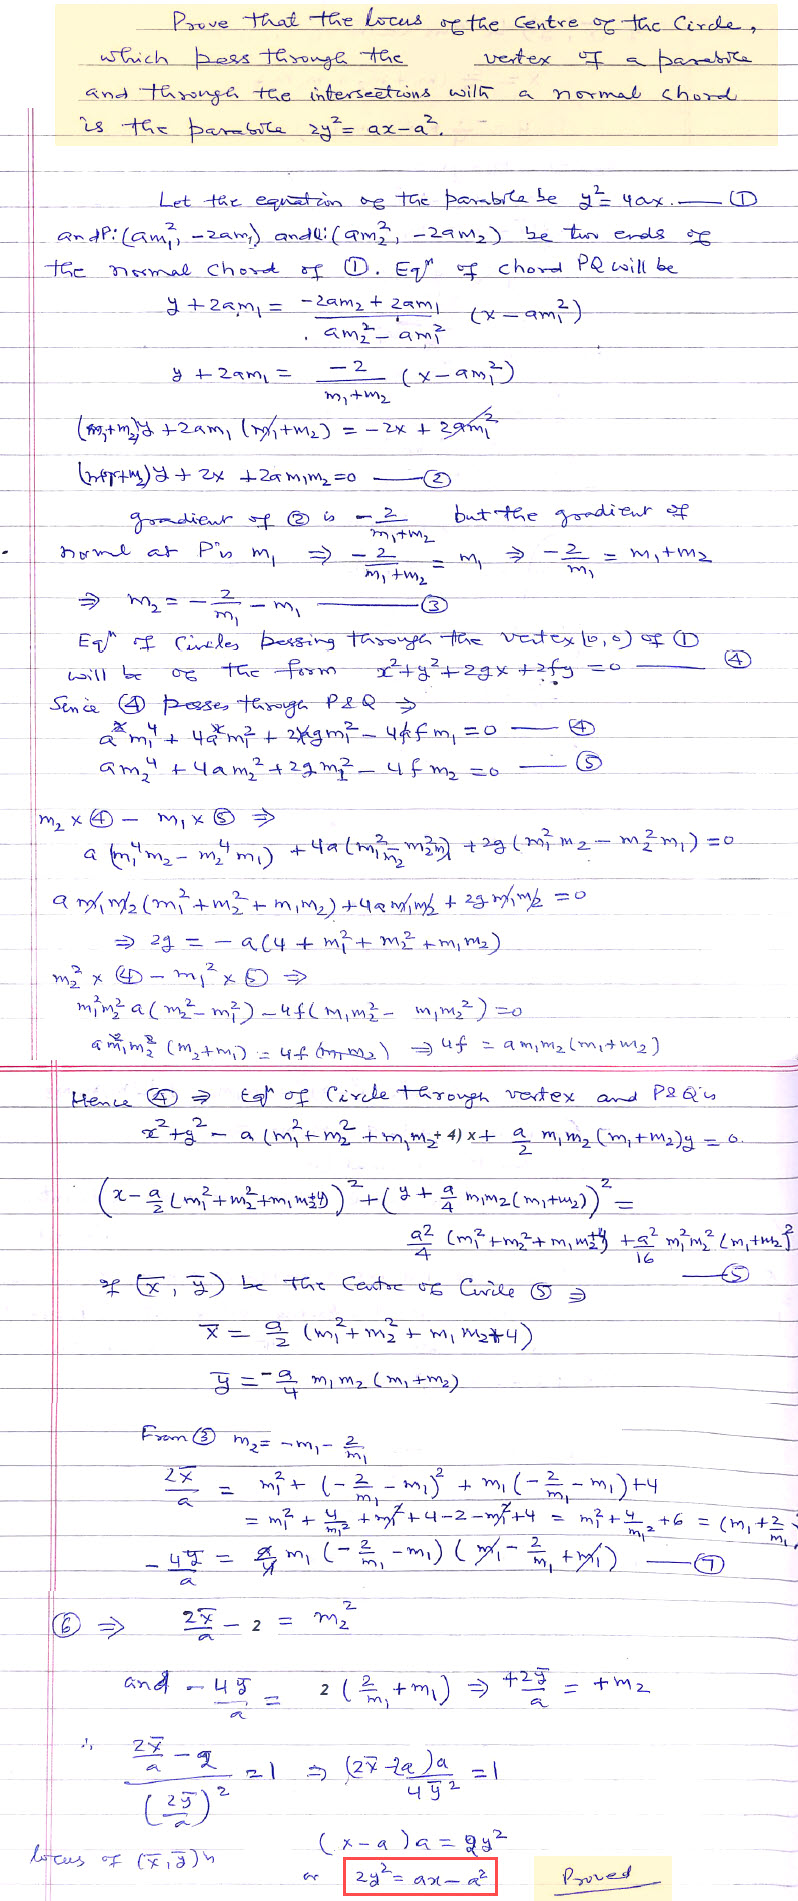 Prove that the locus of the Centre of the Circle,
which pass through the vertex of a parabola
and through the intersections with a normal chord
is the parabola 2y² = ax - a².
Let the equation of the parabola be y² = 4ax. — ①
and P: (am₁², -2am₁) and Q: (am₂², -2am₂) be two ends of
the normal chord of ①. Eqⁿ of chord PQ will be
y + 2am₁ = (-2am₂ + 2am₁)/(am₂² - am₁²) (x - am₁²)
y + 2am₁ = -2/(m₁+m₂) (x - am₁²)
(m₁+m₂)y + 2am₁(m₁+m₂) = -2x + 2am₁²
(m₁+m₂)y + 2x + 2am₁m₂ = 0 — ②
gradient of ② is -2/(m₁+m₂) but the gradient of
normal at P is m₁ ⇒ -2/(m₁+m₂) = m₁ ⇒ -2/m₁ = m₁+m₂
⇒ m₂ = -2/m₁ - m₁ — ③
Eqⁿ of Circles passing through the vertex (0,0) of ①
will be of the form x²+y²+2gx+2fy = 0 — ④
Since ④ passes through P & Q ⇒
a²m₁⁴ + 4a²m₁² + 2agm₁² - 4afm₁ = 0 — ④
am₂⁴ + 4am₂² + 2gm₂² - 4fm₂ = 0 — ⑤
m₂ × ④ - m₁ × ⑤ ⇒
a(m₁⁴m₂ - m₂⁴m₁) + 4a(m₁²m₂ - m₂²m₁) + 2g(m₁²m₂ - m₂²m₁) = 0
am₁m₂(m₁²+m₂²+m₁m₂) + 4am₁m₂ + 2gm₁m₂ = 0
⇒ 2g = -a(4 + m₁² + m₂² + m₁m₂)
m₂² × ④ - m₁² × ⑤ ⇒
m₁²m₂²a(m₂² - m₁²) - 4f(m₁m₂² - m₁m₂²) = 0
am₁²m₂²(m₂+m₁) = 4f(m₁m₂) ⇒ 4f = am₁m₂(m₁+m₂)
Hence ④ ⇒ Eqⁿ of Circle through vertex and P & Q is
x²+y² - a(m₁²+m₂²+m₁m₂+4)x + a/2 m₁m₂(m₁+m₂)y = 0.
(x - a/2 (m₁²+m₂²+m₁m₂+4))² + (y + a/4 m₁m₂(m₁+m₂))² =
a²/4 (m₁²+m₂²+m₁m₂+4) + a²/16 m₁²m₂²(m₁+m₂)²
— ⑤
If (x̄, ȳ) be the Centre of Circle ⑤ ⇒
x̄ = a/2 (m₁²+m₂²+m₁m₂+4)
ȳ = -a/4 m₁m₂(m₁+m₂)
From ③ m₂ = -m₁ - 2/m₁
2x̄/a = m₁² + (-2/m₁ - m₁)² + m₁(-2/m₁ - m₁) + 4
= m₁² + 4/m₁² + m₁² + 4 - 2 - m₁² + 4 = m₁² + 4/m₁² + 6 = (m₁ + 2/m₁
-4ȳ/a = m₁(-2/m₁ - m₁)(m₁ - 2/m₁ + m₁) — ⑦
⑥ ⇒ 2x̄/a - 2 = m₂²
and -4ȳ/a = 2(2/m₁ + m₁) ⇒ +2ȳ/a = +m₂
∴ (2x̄/a - 2)/(2ȳ/a)² = 1 ⇒ (2x̄ - 2a)a/4ȳ² = 1
(x - a)a = 2y²
locus of (x̄, ȳ) is
or 2y² = ax - a² Proved